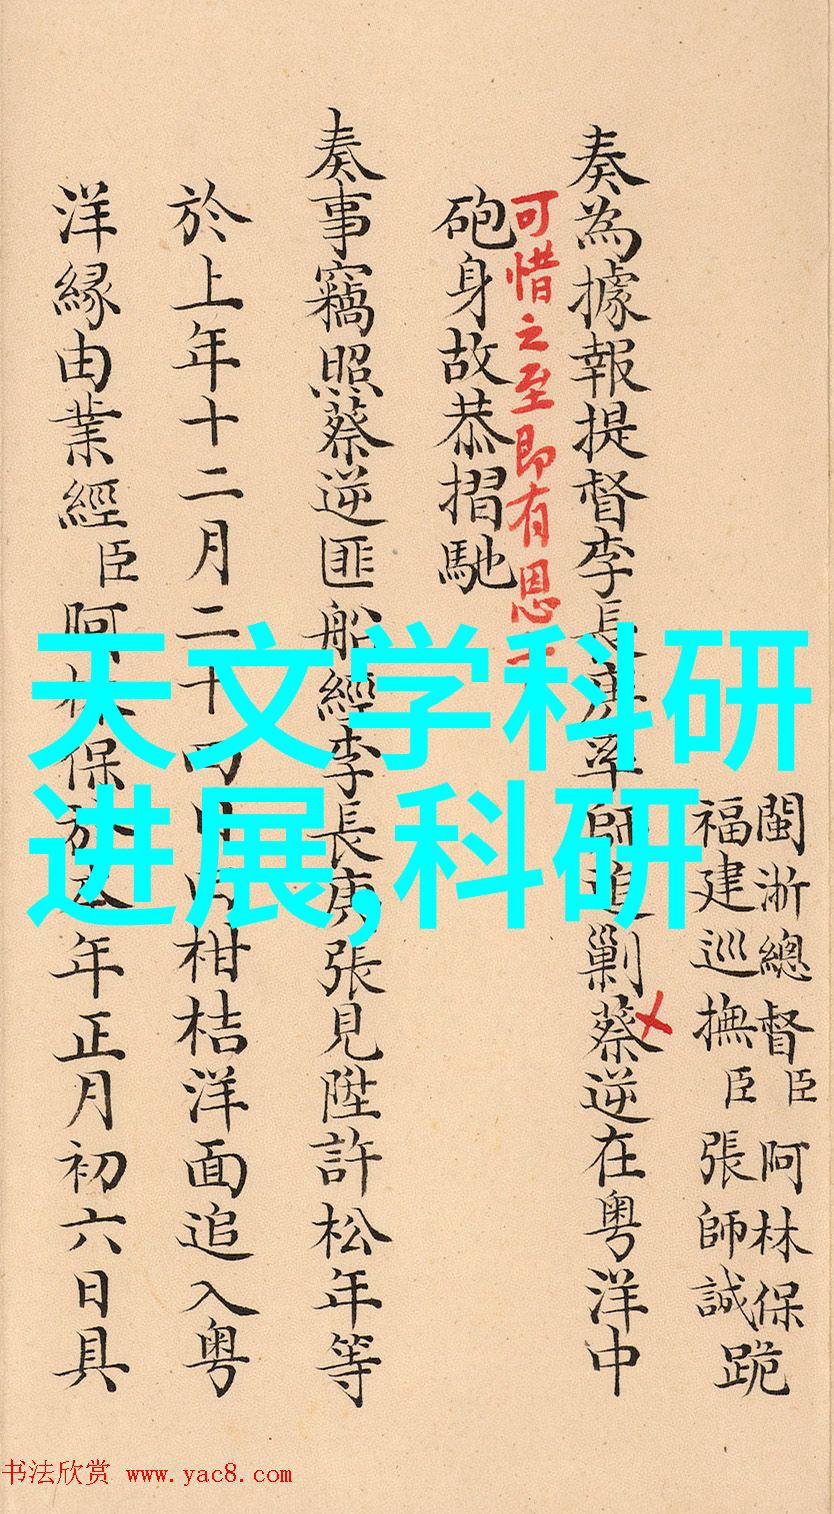 閩浙總督臣阿林保
福建巡撫臣張師誠
跪
奏為據報提督李長庚率師追剿蔡逆在粵洋中
可惜之至即有恩
砲身故恭摺馳
奏事竊照蔡逆匪船經李長庚張見陞許松年等
於上年十二月二十四日柑桔洋面追入粵
洋緣由業經臣阿林保於本年正月初六日具
天文学科研
进展,科研
书法欣赏 www.yac8.com